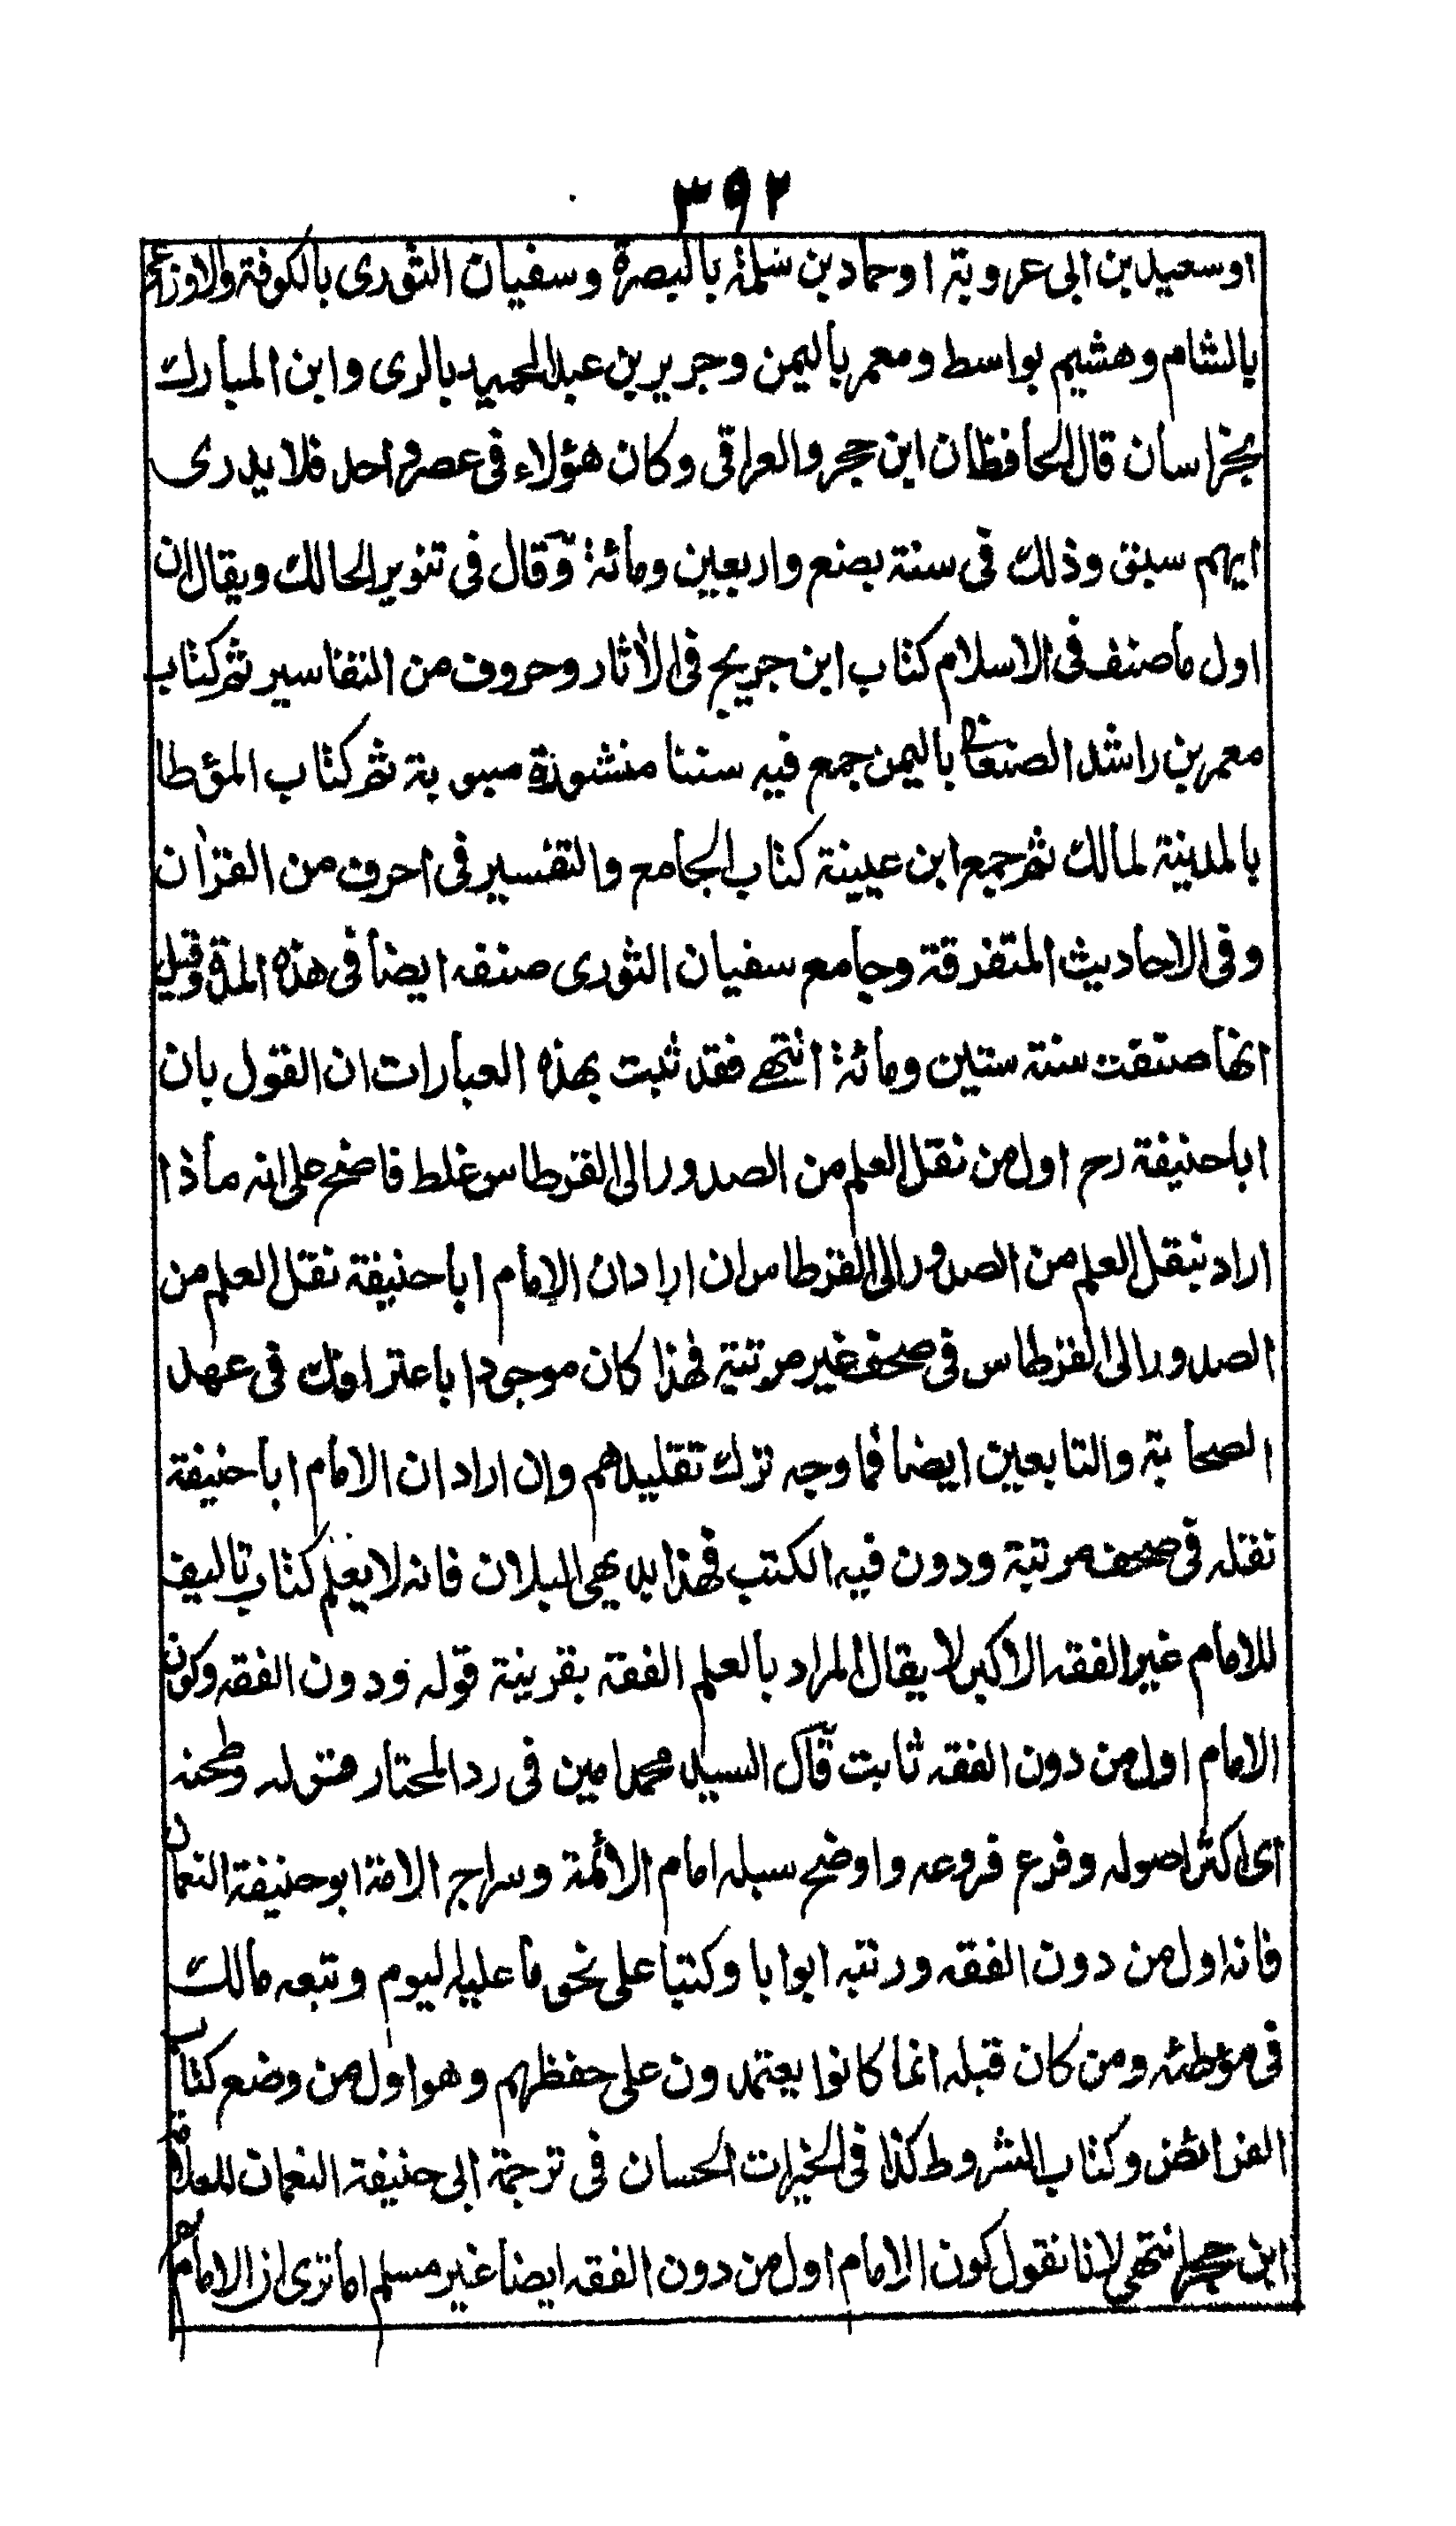 ٣٩٢
اوسعيد بن ابى عروبة اوحماد بن سلمة بالبصرة وسفيان الثورى بالكوفة والاوزاعى
بالشام وهشيم بواسط ومعمر باليمن وجرير بن عبد الحميد بالرى وابن المبارك
بخراسان قال الحافظان ابن حجر والعراقى وكان هؤلاء فى عصر واحد فلا يدرى
ايهم سبق وذلك فى سنة بضع واربعين ومائة وقال فى تنوير الحالك ويقال ان
اول ما صنف فى الاسلام كتاب ابن جريج فى الاثار وحروف من التفاسير ثم كتاب
معمر بن راشد الصنعانى باليمن جمع فيه سننا منشورة مبوبة ثم كتاب المؤطا
بالمدينة لمالك ثم جمع ابن عيينة كتاب الجامع والتفسير فى احرف من القرآن
وفى الاحاديث المتفرقة وجامع سفيان الثورى صنفه ايضا فى هذه المدة وقيل
انها صنفت سنة ستين ومائة انتهى فقد ثبت بهذه العبارات ان القول بان
اباحنيفة رح اول من نقل العلم من الصدور الى القرطاس غلط فاضح على انه ماذا
اراد بنقل العلم من الصدور الى القرطاس ان اراد ان الامام اباحنيفة نقل العلم من
الصدور الى القرطاس فى صحف غير مرتبة فهذا كان موجودا باعترافك فى عهد
الصحابة والتابعين ايضا فما وجه ترك تقليدهم وان اراد ان الامام اباحنيفة
نقله فى صحف مرتبة ودون فيه الكتب فهذا بديهى البطلان فانه لا يعلم كتاب تاليف
للامام غير الفقه الاكبر لا يقال المراد بالعلم الفقه بقرينة قوله ودون الفقه وكون
الامام اول من دون الفقه ثابت قال السيد محمد امين فى رد المحتار قوله وطحنه
اى اكثر اصوله وفرع فروعه واوضح سبله امام الائمة وسراج الامة ابوحنيفة النعمان
فانه اول من دون الفقه ورتبه ابوابا وكتبا على نحو ما عليه اليوم وتبعه مالك
فى مؤطئه ومن كان قبله انما كانوا يعتمدون على حفظهم وهو اول من وضع كتاب
الفرائض وكتاب الشروط كذا فى الخيرات الحسان فى ترجمة ابى حنيفة النعمان للعلامة
ابن حجر انتهى لانا نقول كون الامام اول من دون الفقه ايضا غير مسلم اما ترى ان الامام